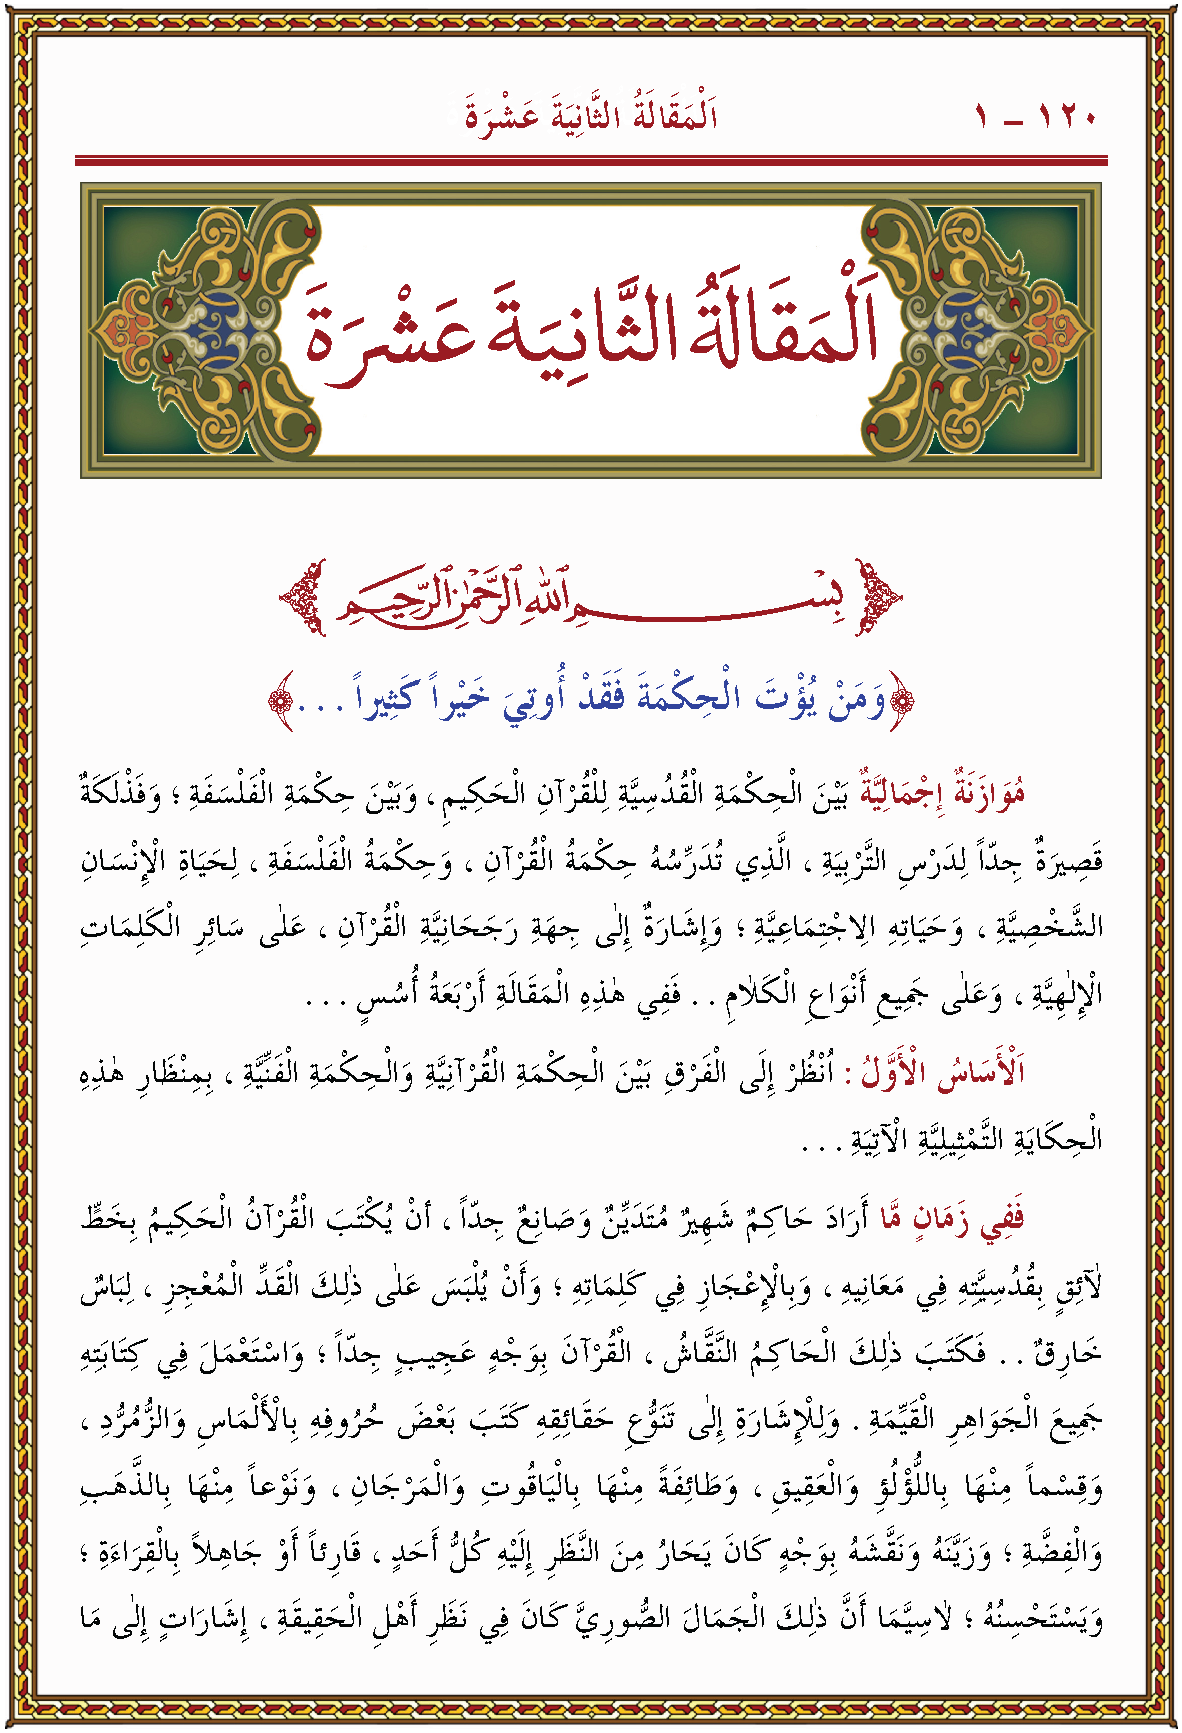 ١٢٠ – ١ اَلْمَقَالَةُ الثَّانِيَةَ عَشْرَةَ
اَلْمَقَالَةُ الثَّانِيَةَ عَشْرَةَ
بِسْمِ ٱللّٰهِ ٱلرَّحْمٰنِ ٱلرَّحِيمِ
﴿وَمَنْ يُؤْتَ الْحِكْمَةَ فَقَدْ أُوتِيَ خَيْراً كَثِيراً . . .﴾
مُوَازَنَةٌ إِجْمَالِيَّةٌ بَيْنَ الْحِكْمَةِ الْقُدْسِيَّةِ لِلْقُرْآنِ الْحَكِيمِ ، وَبَيْنَ حِكْمَةِ الْفَلْسَفَةِ ؛ وَفَذْلَكَةٌ
قَصِيرَةٌ جِدّاً لِدَرْسِ التَّرْبِيَةِ ، الَّذِي تُدَرِّسُهُ حِكْمَةُ الْقُرْآنِ ، وَحِكْمَةُ الْفَلْسَفَةِ ، لِحَيَاةِ الْإِنْسَانِ
الشَّخْصِيَّةِ ، وَحَيَاتِهِ الِاجْتِمَاعِيَّةِ ؛ وَإِشَارَةٌ إِلٰى جِهَةِ رَجَحَانِيَّةِ الْقُرْآنِ ، عَلٰى سَائِرِ الْكَلِمَاتِ
الْإِلٰهِيَّةِ ، وَعَلٰى جَمِيعِ أَنْوَاعِ الْكَلَامِ . . فَفِي هٰذِهِ الْمَقَالَةِ أَرْبَعَةُ أُسُسٍ . . .
اَلْأَسَاسُ الْأَوَّلُ : اُنْظُرْ إِلَى الْفَرْقِ بَيْنَ الْحِكْمَةِ الْقُرْآنِيَّةِ وَالْحِكْمَةِ الْفَنِّيَّةِ ، بِمِنْظَارِ هٰذِهِ
الْحِكَايَةِ التَّمْثِيلِيَّةِ الْآتِيَةِ . . .
فَفِي زَمَانٍ مَّا أَرَادَ حَاكِمٌ شَهِيرٌ مُتَدَيِّنٌ وَصَانِعٌ جِدّاً ، أنْ يُكْتَبَ الْقُرْآنُ الْحَكِيمُ بِخَطٍّ
لَآئِقٍ بِقُدُسِيَّتِهِ فِي مَعَانِيهِ ، وَبِالْإِعْجَازِ فِي كَلِمَاتِهِ ؛ وَأَنْ يُلْبَسَ عَلٰى ذٰلِكَ الْقَدِّ الْمُعْجِزِ ، لِبَاسٌ
خَارِقٌ . . فَكَتَبَ ذٰلِكَ الْحَاكِمُ النَّقَّاشُ ، الْقُرْآنَ بِوَجْهٍ عَجِيبٍ جِدّاً ؛ وَاسْتَعْمَلَ فِي كِتَابَتِهِ
جَمِيعَ الْجَوَاهِرِ الْقَيِّمَةِ . وَلِلْإِشَارَةِ إِلٰى تَنَوُّعِ حَقَائِقِهِ كَتَبَ بَعْضَ حُرُوفِهِ بِالْأَلْمَاسِ وَالزُّمُرُّدِ ،
وَقِسْماً مِنْهَا بِاللُّؤْلُؤِ وَالْعَقِيقِ ، وَطَائِفَةً مِنْهَا بِالْيَاقُوتِ وَالْمَرْجَانِ ، وَنَوْعاً مِنْهَا بِالذَّهَبِ
وَالْفِضَّةِ ؛ وَزَيَّنَهُ وَنَقَّشَهُ بِوَجْهٍ كَانَ يَحَارُ مِنَ النَّظَرِ إِلَيْهِ كُلُّ أَحَدٍ ، قَارِئاً أَوْ جَاهِلاً بِالْقِرَاءَةِ ؛
وَيَسْتَحْسِنُهُ ؛ لَاسِيَّمَا أَنَّ ذٰلِكَ الْجَمَالَ الصُّورِيَّ كَانَ فِي نَظَرِ أَهْلِ الْحَقِيقَةِ ، إِشَارَاتٍ إِلٰى مَا